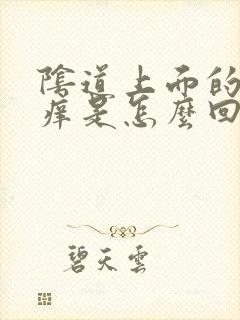 陰道上面的
癢是怎麼回
碧天雲